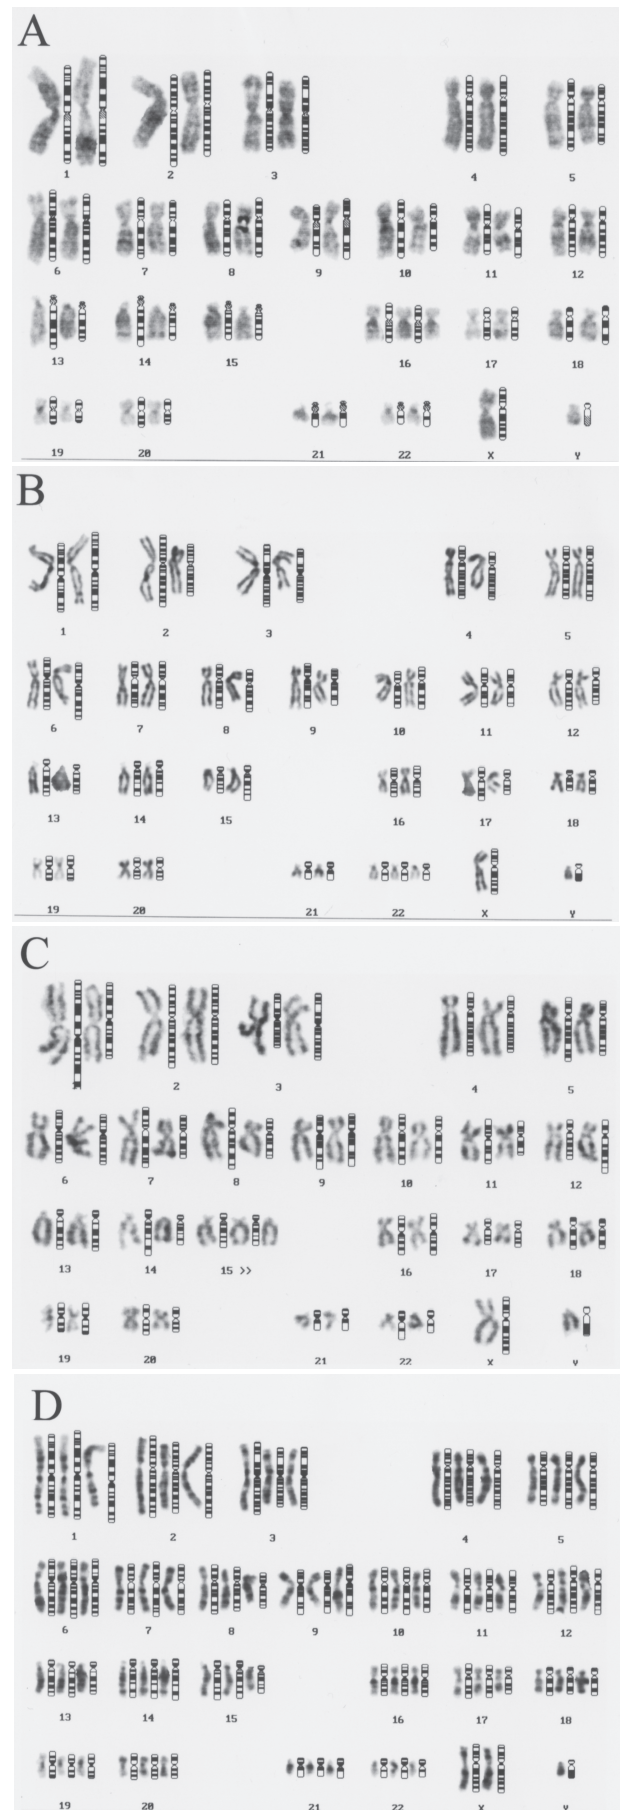 A
1 2 3 4 5
6 7 8 9 10 11 12
13 14 15 16 17 18
19 20 21 22 X Y
B
1 2 3 4 5
6 7 8 9 10 11 12
13 14 15 16 17 18
19 20 21 22 X Y
C
1 2 3 4 5
6 7 8 9 10 11 12
13 14 15 >> 16 17 18
19 20 21 22 X Y
D
1 2 3 4 5
6 7 8 9 10 11 12
13 14 15 16 17 18
19 20 21 22 X Y